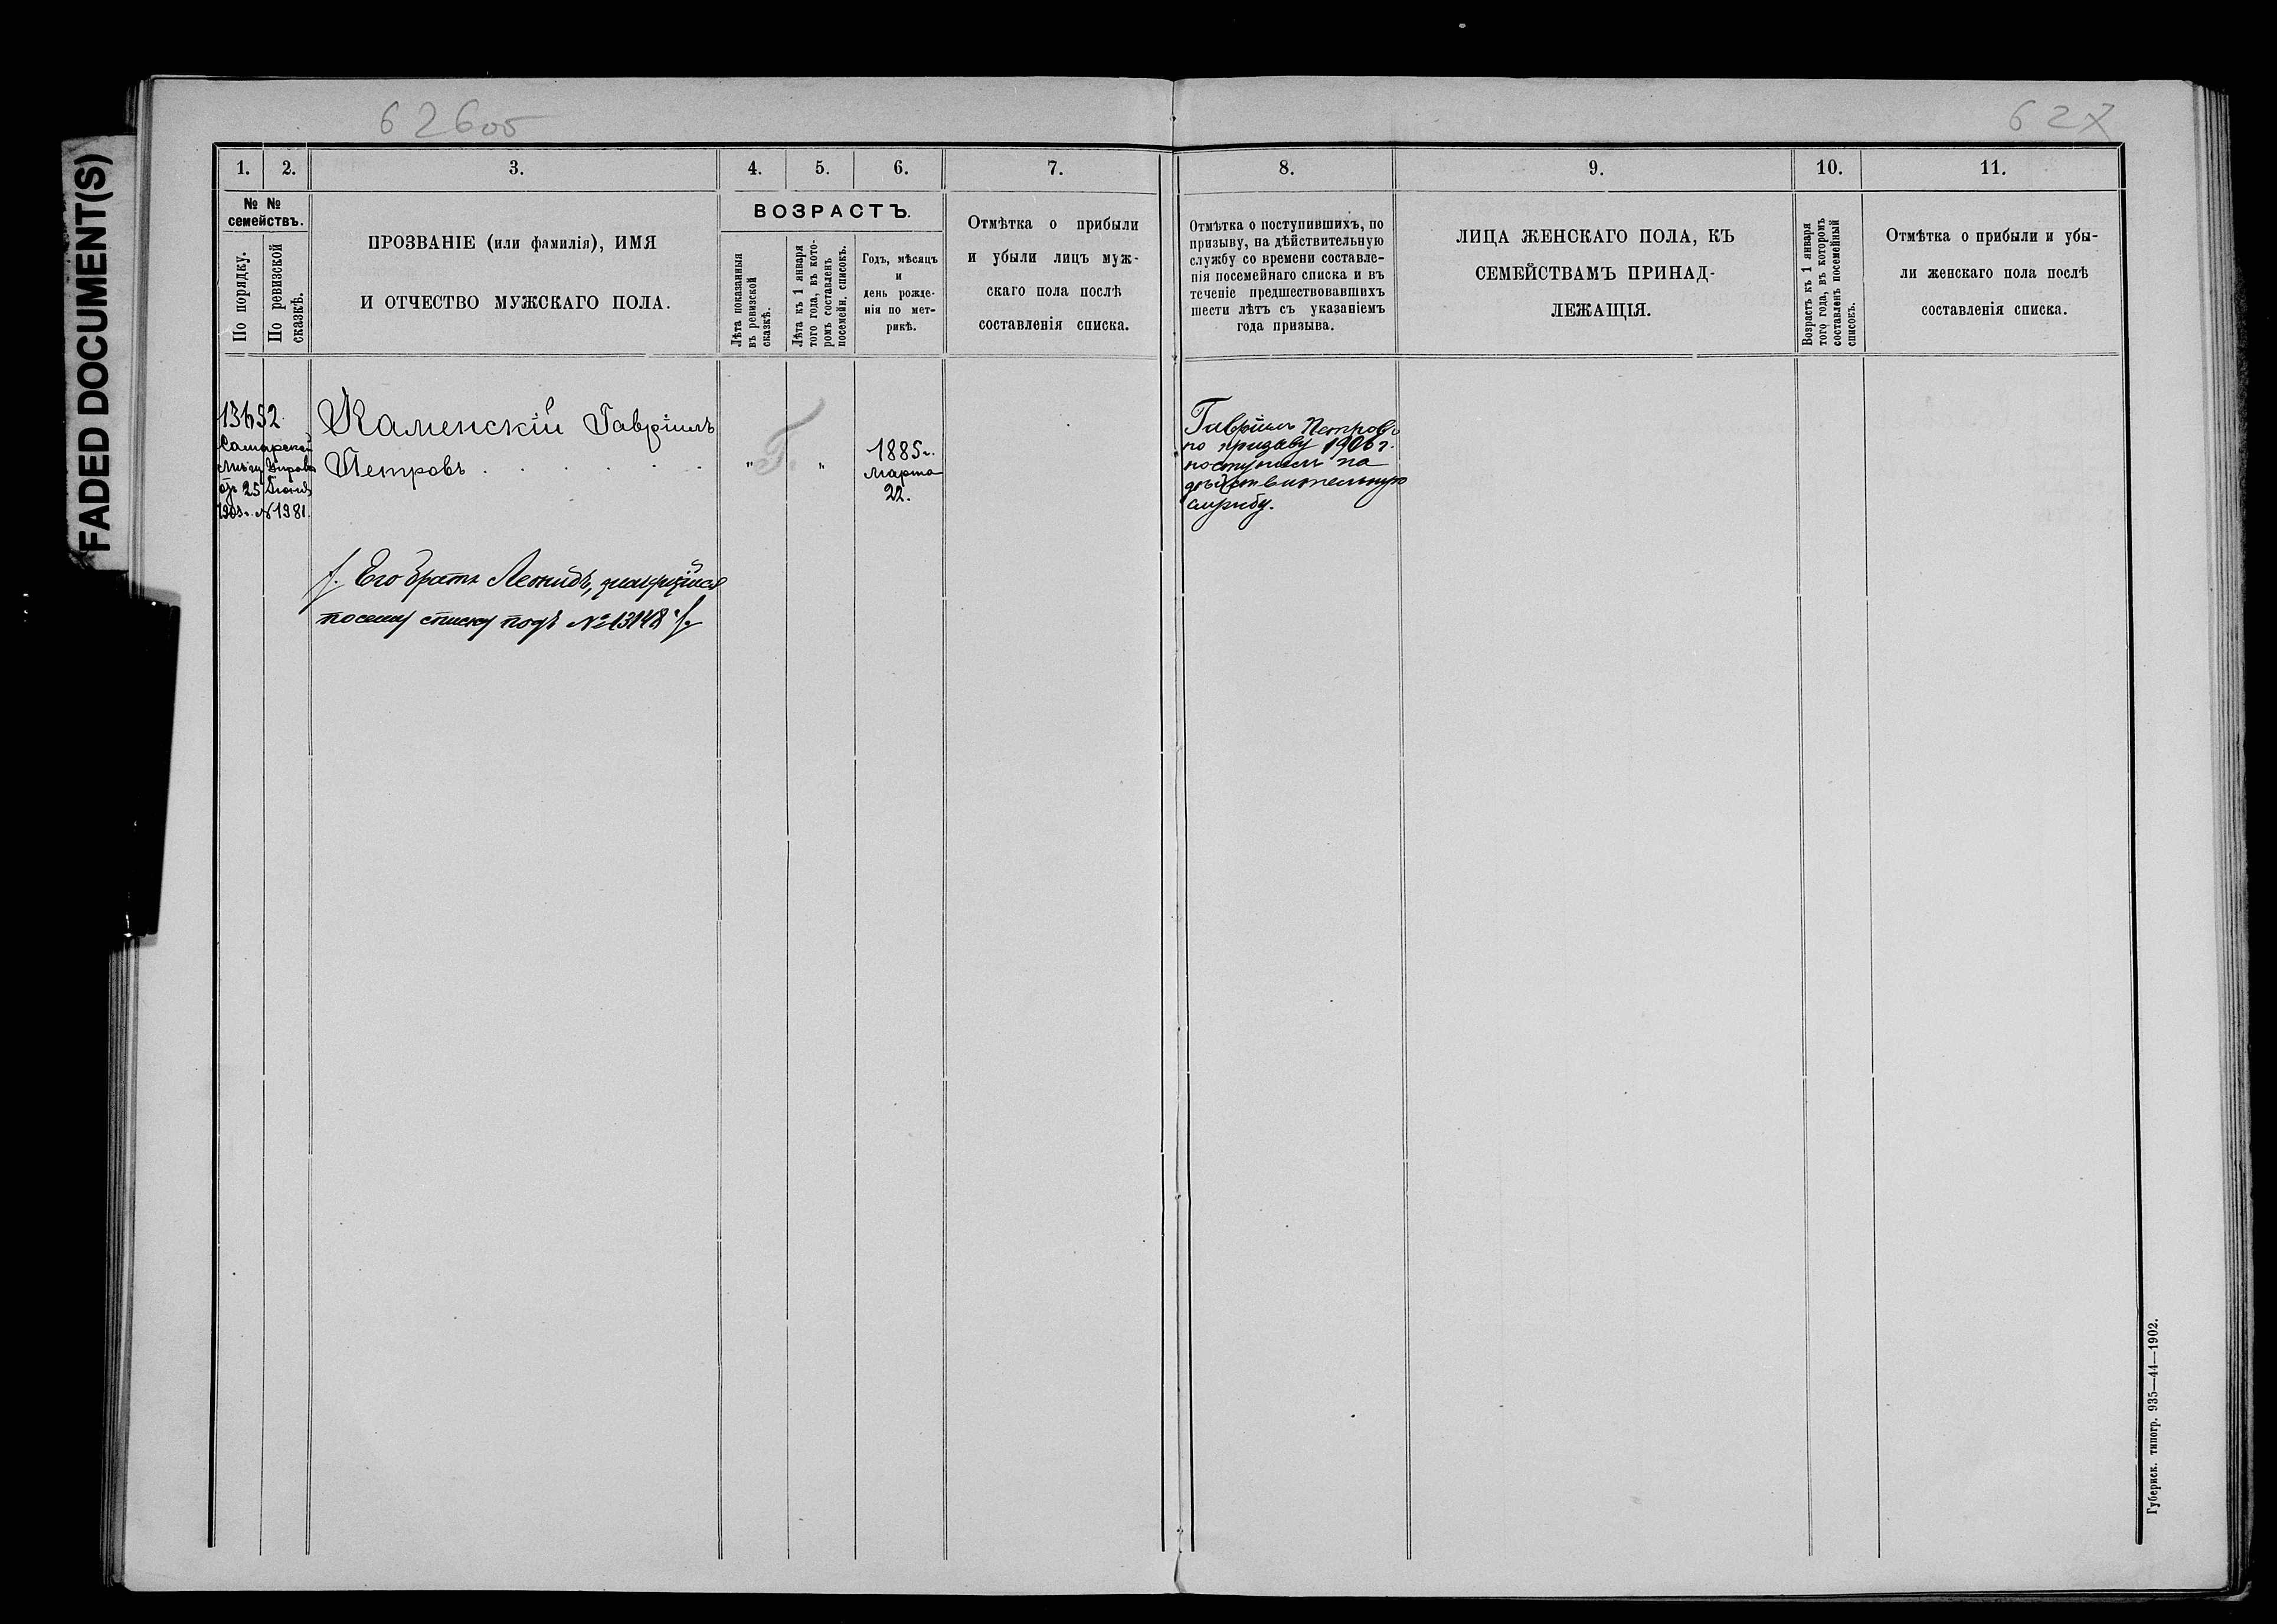 FADED DOCUMENT(S)
626об
627
1.
2.
3.
4.
5.
6.
7.
8.
9.
10.
11.
№ №
семействъ.
По порядку.
По ревизской
сказкѣ.
ПРОЗВАНІЕ (или фамилія), ИМЯ
И ОТЧЕСТВО МУЖСКАГО ПОЛА.
ВОЗРАСТЪ.
Лѣта показанныя
въ ревизской
сказкѣ.
Лѣта къ 1 января
того года, въ кото-
ромъ составленъ
посемейн. списокъ.
Годъ, мѣсяцъ
и
день рожде-
нія по мет-
рикѣ.
Отмѣтка о прибыли
и убыли лицъ муж-
скаго пола послѣ
составленія списка.
Отмѣтка о поступившихъ, по
призыву, на дѣйствительную
службу со времени составле-
нія посемейнаго списка и въ
теченіе предшествовавшихъ
шести лѣтъ съ указаніемъ
года призыва.
ЛИЦА ЖЕНСКАГО ПОЛА, КЪ
СЕМЕЙСТВАМЪ ПРИНАД-
ЛЕЖАЩІЯ.
Возрастъ къ 1 января
того года, въ которомъ
составленъ посемейный
списокъ.
Отмѣтка о прибыли и убы-
ли женскаго пола послѣ
составленія списка.
13652.
Самарской
Управы
25 Іюня
№ 1981.
Каменскій Гавріилъ
Петровъ . . . . . .
„ Г. „
1885 г.
Марта
22.
Гавріилъ Петровъ
по призыву 1906 г.
поступилъ на
дѣйствительную
службу.
Его братъ Леонидъ, значущійся
по сему списку подъ № 13148
Губернск. типогр. 935—44—1902.